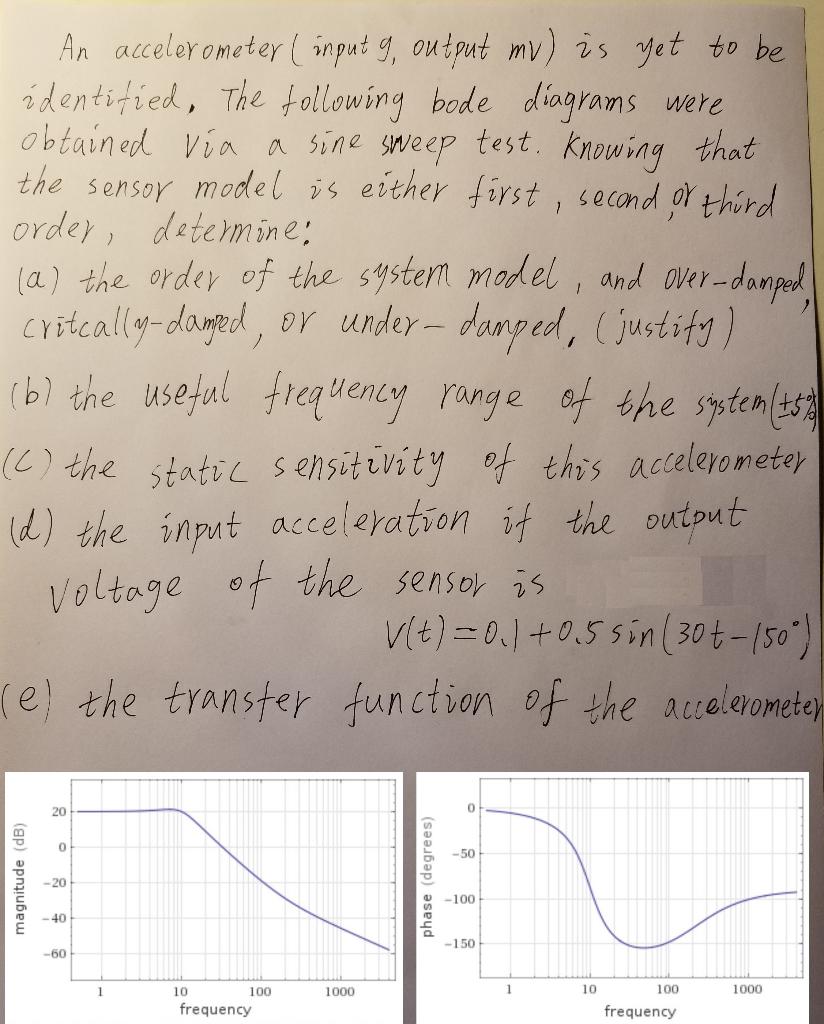 An accelerometer ( input g, output mv) is yet to be
identified. The following bode diagrams were
obtained via a sine sweep test. Knowing that
the sensor model is either first, second, or third
order, determine:
(a) the order of the system model, and over-damped,
critcally-damped, or under-damped. (justify)
(b) the useful frequency range of the system (±5%)
(c) the static sensitivity of this accelerometer
(d) the input acceleration if the output
voltage of the sensor is
V(t) = 0.1 + 0.5 sin(30t - 150°)
(e) the transfer function of the accelerometer
magnitude (dB)
20
0
-20
-40
-60
1 10 100 1000
frequency
phase (degrees)
0
-50
-100
-150
1 10 100 1000
frequency